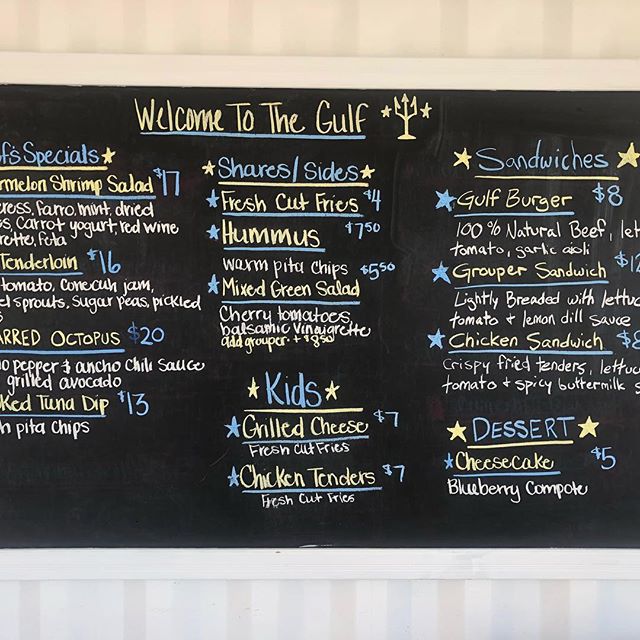 Welcome To The Gulf
Specials
Shrimp Salad $17
farro, mint, dried
carrot yogurt, red wine
feta
Tenderloin $16
tomato, conecuh jam,
sprouts, sugar peas, pickled
Octopus $20
pepper & ancho chili sauce
grilled avocado
Tuna Dip $13
pita chips
Shares/Sides
Fresh Cut Fries $4
Hummus $7.50
warm pita chips
Mixed Green Salad $5.50
Cherry tomatoes,
balsamic vinaigrette
add grouper + $8.50
Kids
Grilled Cheese $7
Fresh Cut Fries
Chicken Tenders $7
Fresh Cut Fries
Sandwiches
Gulf Burger $8
100% Natural Beef,
tomato, garlic aioli
Grouper Sandwich
Lightly Breaded with
tomato & lemon dill sauce
Chicken Sandwich $8
Crispy fried tenders,
tomato & spicy buttermilk
Dessert
Cheesecake $5
Blueberry Compote